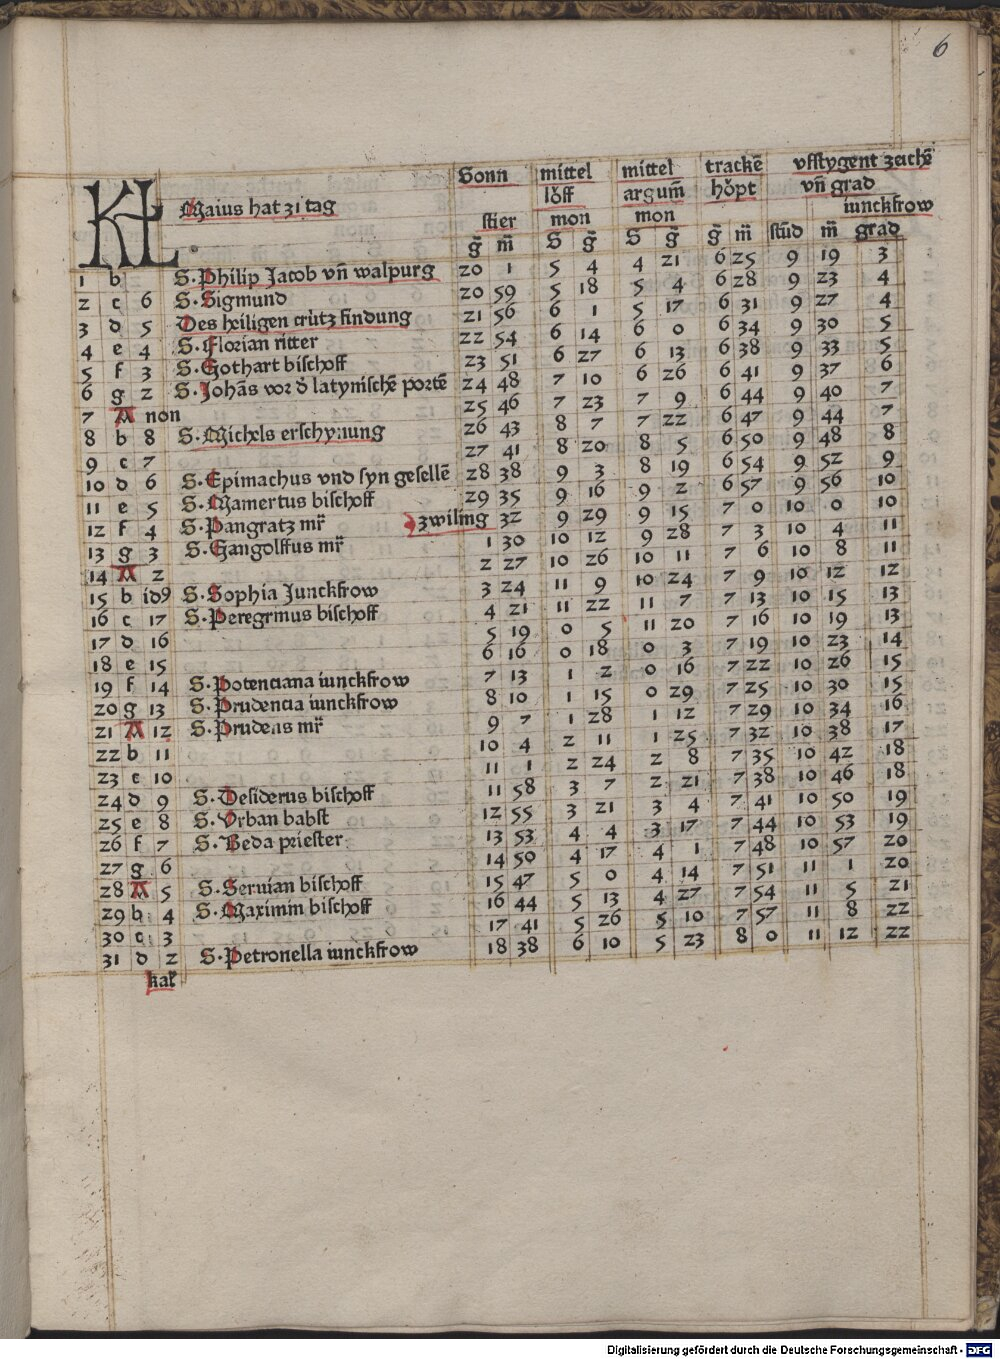 6
KL Maius hat 31 tag
Sonn mittel mittel trackē vffſtygent zeichē
lŏff argum̄ hŏpt vn̄ grad
ſtier mon mon iunckfrow
g̃ m̃ S g̃ S g̃ g̃ m̃ ſtūd m̃ grad
1 b S. Philip Jacob vn̄ walpurg 20 1 5 4 4 21 6 25 9 19 3
2 c 6 S. Sigmund 20 59 5 18 5 4 6 28 9 23 4
3 d 5 Des heiligen crùtz findung 21 56 6 1 5 17 6 31 9 27 4
4 e 4 S. Florian ritter 22 54 6 14 6 0 6 34 9 30 5
5 f 3 S. Gothart biſchoff 23 51 6 27 6 13 6 38 9 33 5
6 g 2 S. Johās vor d̾ latyniſchē portē 24 48 7 10 6 26 6 41 9 37 6
7 A non 25 46 7 23 7 9 6 44 9 40 7
8 b 8 S. Michels erſchynung 26 43 8 7 7 22 6 47 9 44 7
9 c 7 27 41 8 20 8 5 6 50 9 48 8
10 d 6 S. Epimachus vnd ſyn geſellē 28 38 9 3 8 19 6 54 9 52 9
11 e 5 S. Mamertus biſchoff 29 35 9 16 9 2 6 57 9 56 10
12 f 4 S. Pangratz mr̄ zwiling 32 9 29 9 15 7 0 10 0 10
13 g 3 S. Gangolffus mr̄ 1 30 10 12 9 28 7 3 10 4 11
14 A 2 2 27 10 26 10 11 7 6 10 8 11
15 b id9 S. Sophia Junckfrow 3 24 11 9 10 24 7 9 10 12 12
16 c 17 S. Peregrinus biſchoff 4 21 11 22 11 7 7 13 10 15 13
17 d 16 5 19 0 5 11 20 7 16 10 19 13
18 e 15 6 16 0 18 0 3 7 19 10 23 14
19 f 14 S. Potenciana iunckfrow 7 13 1 2 0 16 7 22 10 26 15
20 g 13 S. Prudencia iunckfrow 8 10 1 15 0 29 7 25 10 30 15
21 A 12 S. Prudens mr̄ 9 7 1 28 1 12 7 29 10 34 16
22 b 11 10 4 2 11 1 25 7 32 10 38 17
23 c 10 11 1 2 24 2 8 7 35 10 42 18
24 d 9 S. Deſiderus biſchoff 11 58 3 7 2 21 7 38 10 46 18
25 e 8 S. Vrban babſt 12 55 3 21 3 4 7 41 10 50 19
26 f 7 S. Beda prieſter 13 53 4 4 3 17 7 44 10 53 19
27 g 6 14 50 4 17 4 1 7 48 10 57 20
28 A 5 S. Seruian biſchoff 15 47 5 0 4 14 7 51 11 1 20
29 b 4 S. Maximin biſchoff 16 44 5 13 4 27 7 54 11 5 21
30 c 3 17 41 5 26 5 10 7 57 11 8 22
31 d 2 S. Petronella iunckfrow 18 38 6 10 5 23 8 0 11 12 22
kal̄
Digitalisierung gefördert durch die Deutsche Forschungsgemeinschaft - DFG